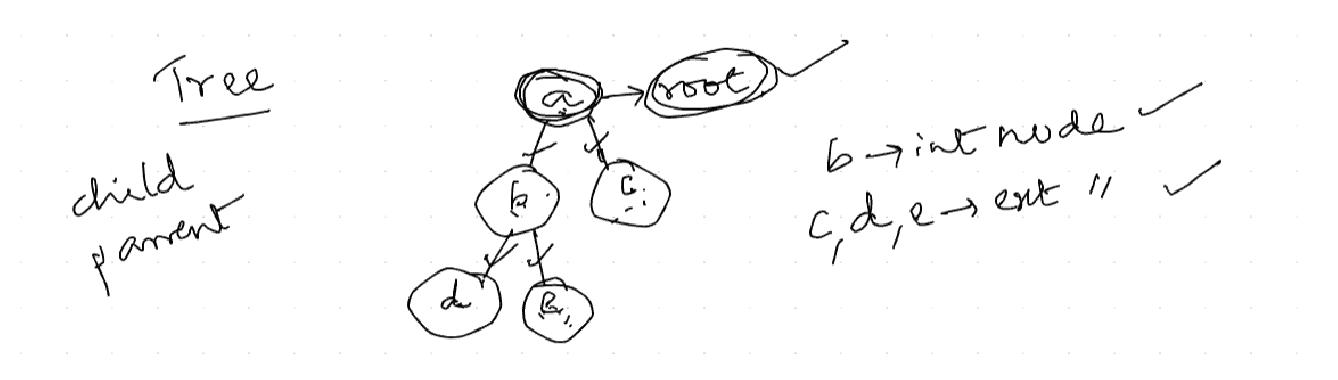 Tree
child
parrent
a → root
b
c
d
e
b → int node
c, d, e → ext "